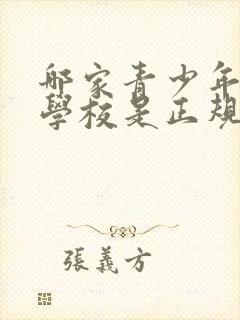 哪家青少年
學校是正規
張義方